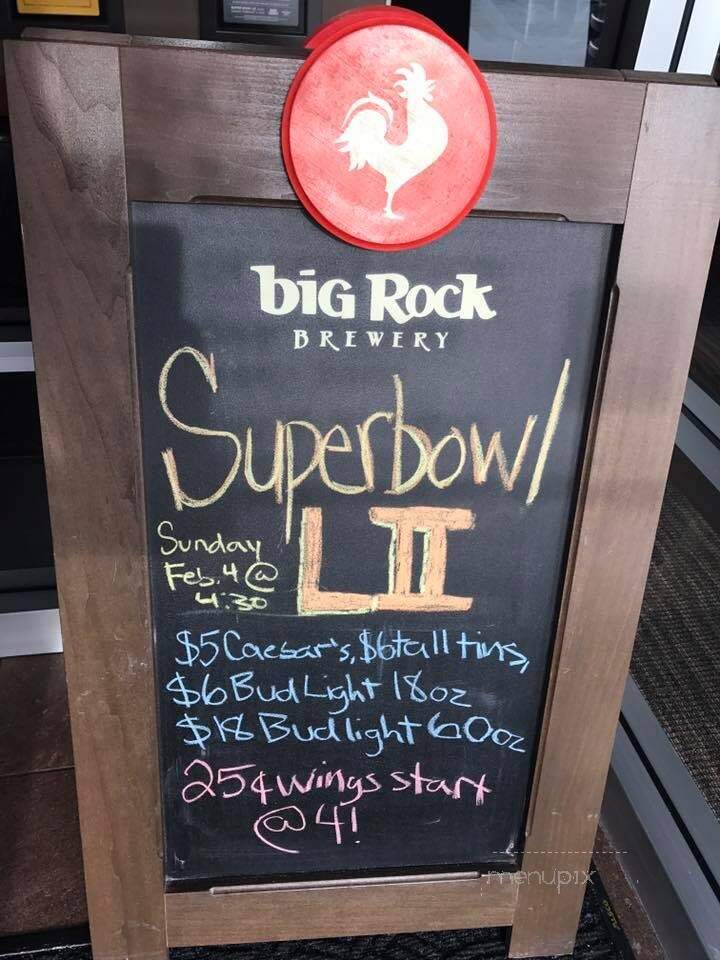 big Rock
BREWERY
Superbowl
LII
Sunday
Feb. 4 @
4:30
$5 Caesar's, $6 tall tins,
$6 Bud Light 18oz
$18 Budlight 60oz
25¢ wings start
@ 4!
menupix